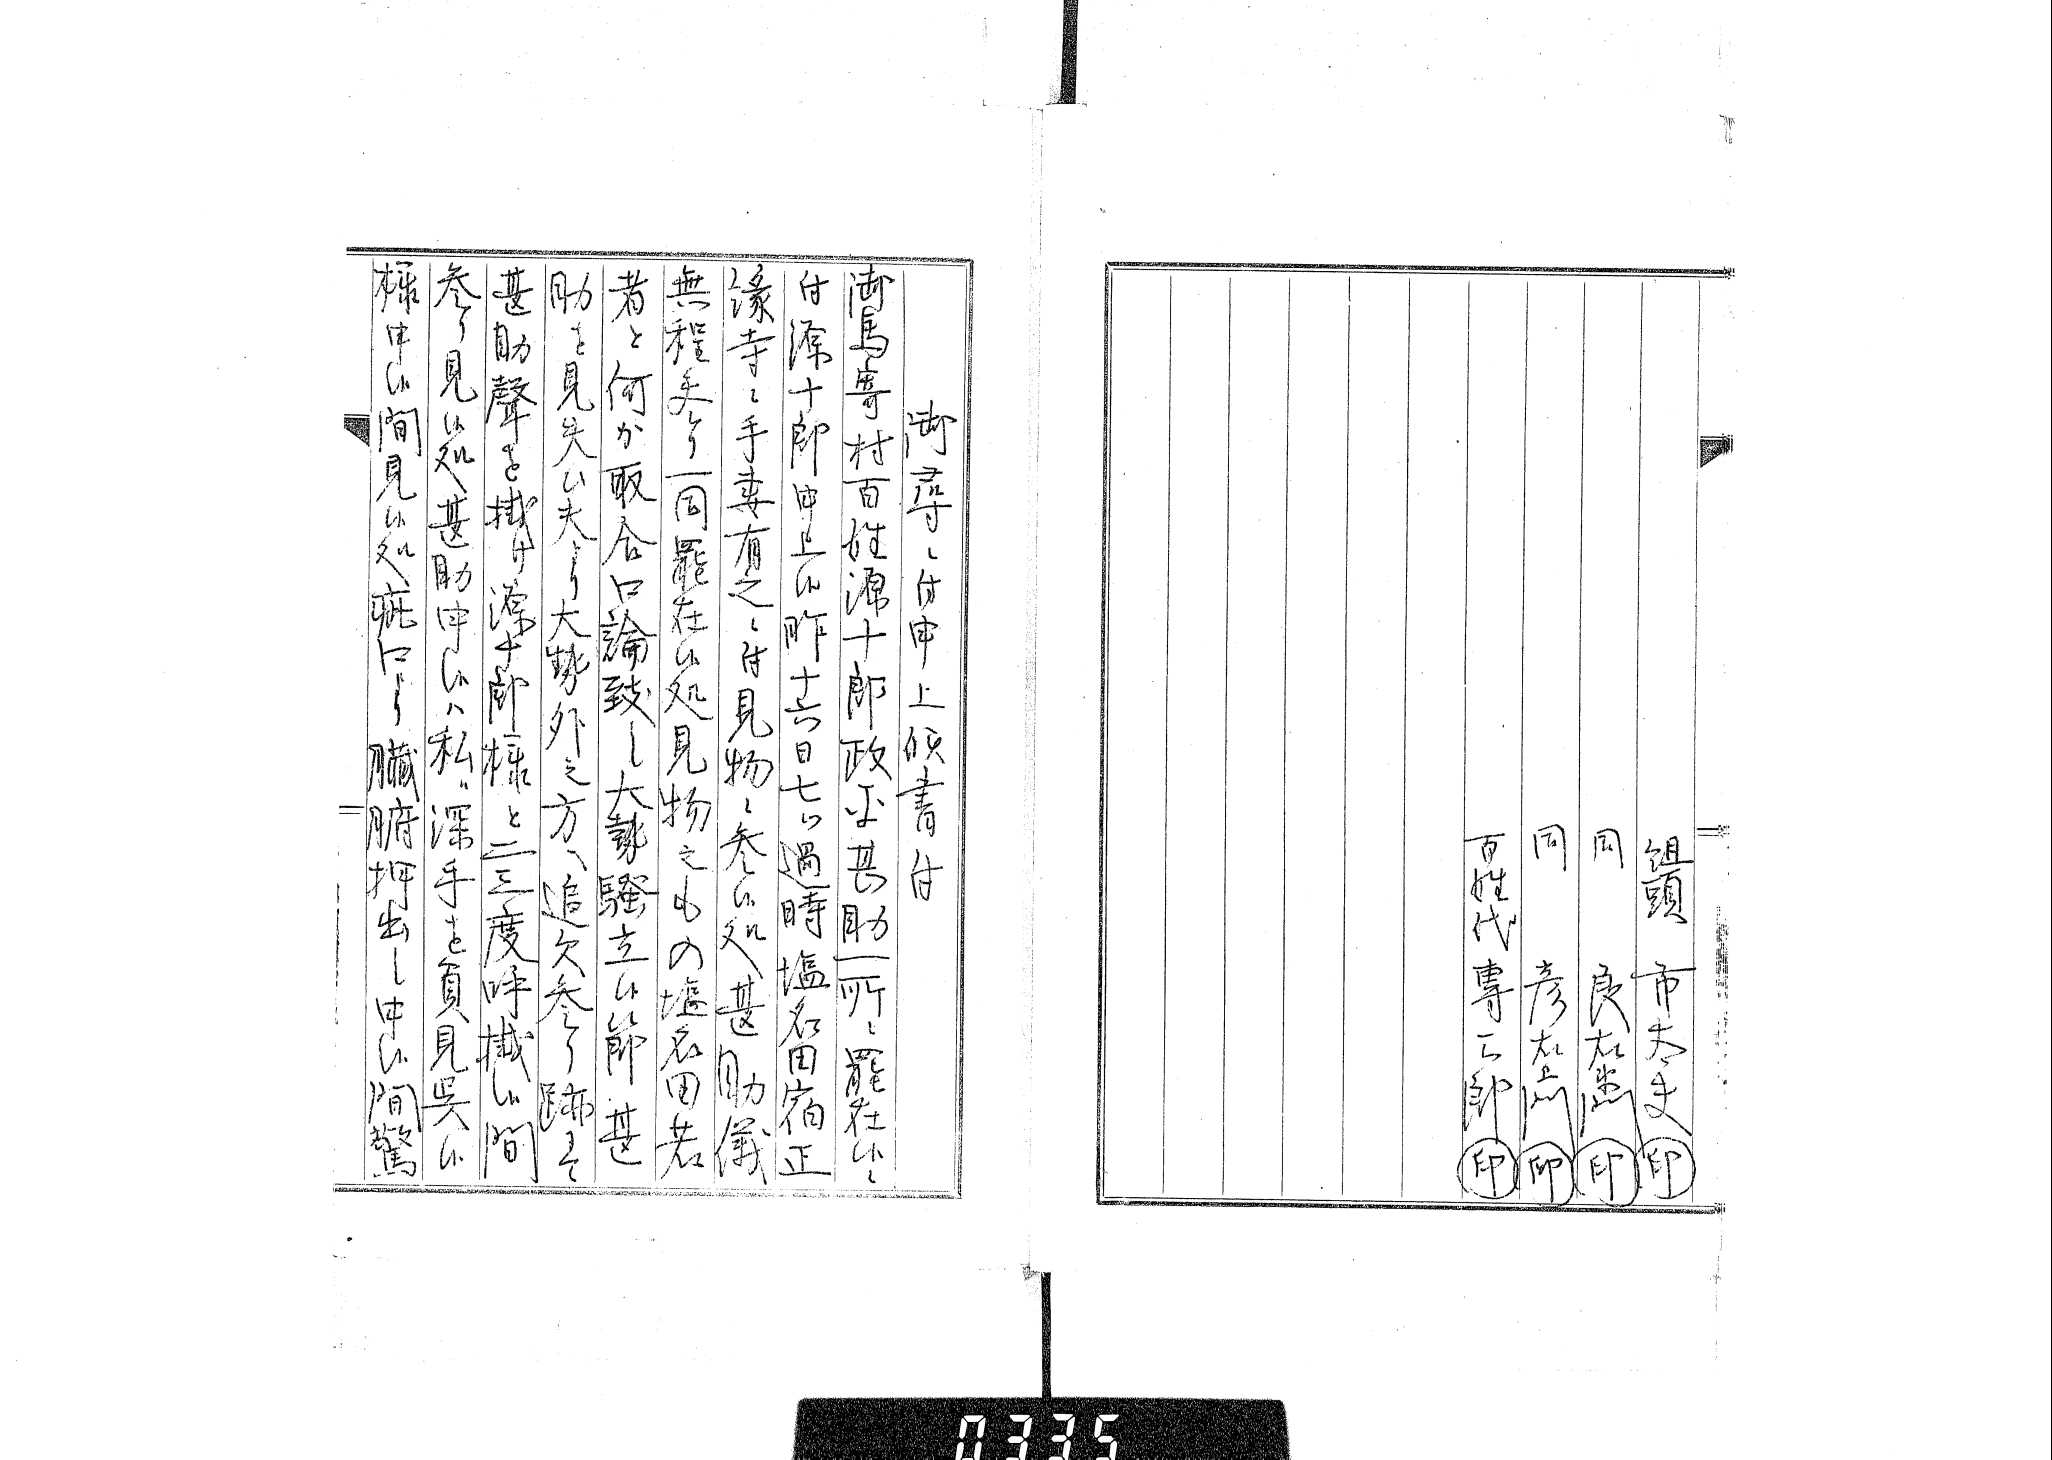 組頭 市太夫 印
同 良右衛門 印
同 彦右衛門 印
百姓代 専三郎 印
御尋ニ付申上候書付
御馬寄村百姓源十郎政平甚助一所ニ罷在候ニ
付源十郎申上候昨十六日七ツ過時塩名田宿正
縁寺ニ手妻有之ニ付見物ニ参候処甚助儀
無程参り一同罷在候処見物之もの塩名田若
者と何か取合口論致し大勢騒立候節甚
助を見失ひ夫より大勢外之方へ追欠参り跡ニて
甚助聲を掛け源十郎様と二三度呼掛候間
参り見候処甚助申候ハ私ハ深手を負見呉候
様申候間見候処疵口より臓腑押出し申候間驚
0335